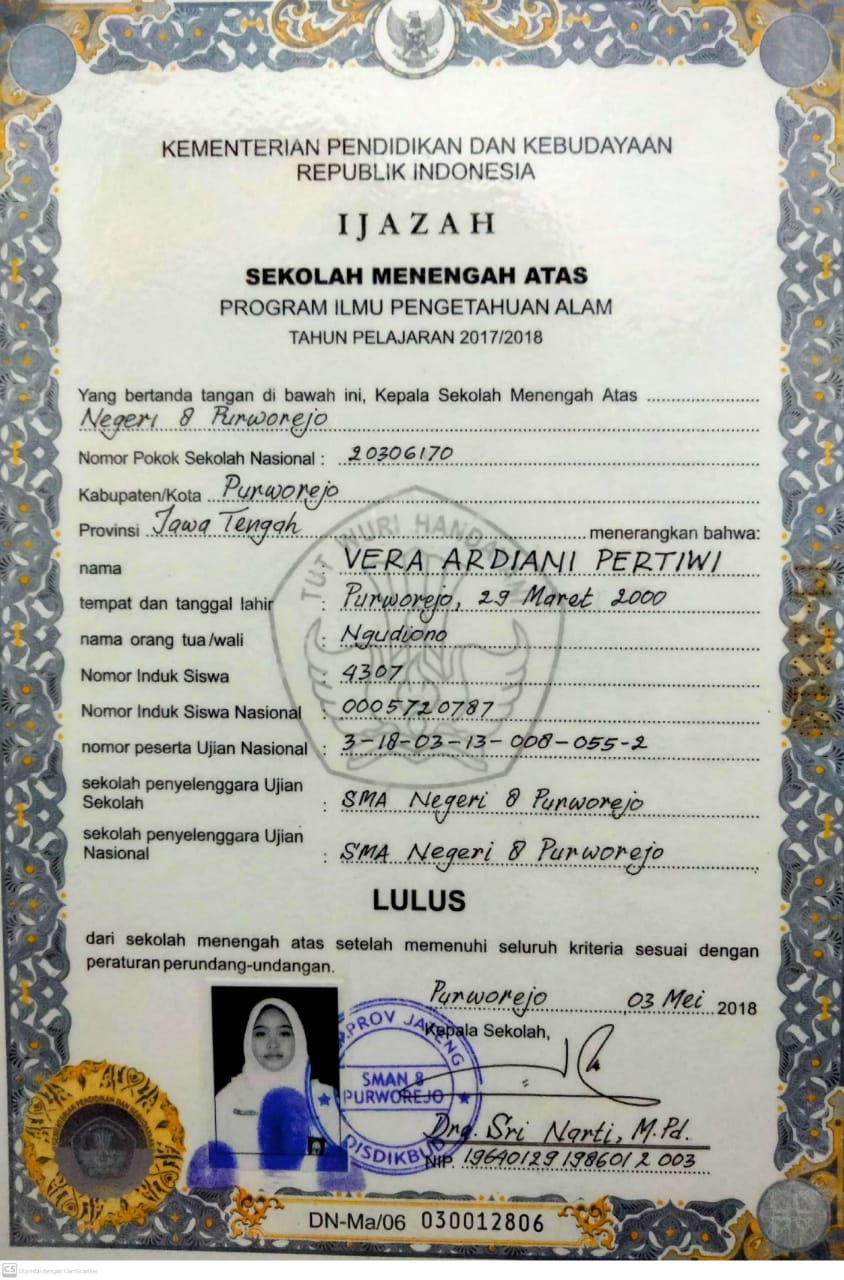 KEMENTERIAN PENDIDIKAN DAN KEBUDAYAAN
REPUBLIK INDONESIA
IJAZAH
SEKOLAH MENENGAH ATAS
PROGRAM ILMU PENGETAHUAN ALAM
TAHUN PELAJARAN 2017/2018
Yang bertanda tangan di bawah ini, Kepala Sekolah Menengah Atas
Negeri 8 Purworejo
Nomor Pokok Sekolah Nasional : 20306170
Kabupaten/Kota Purworejo
Provinsi Jawa Tengah menerangkan bahwa:
nama : VERA ARDIANI PERTIWI
tempat dan tanggal lahir : Purworejo, 29 Maret 2000
nama orang tua/wali : Ngudiono
Nomor Induk Siswa : 4307
Nomor Induk Siswa Nasional : 0005720787
nomor peserta Ujian Nasional : 3-18-03-13-008-055-2
sekolah penyelenggara Ujian
Sekolah : SMA Negeri 8 Purworejo
sekolah penyelenggara Ujian
Nasional : SMA Negeri 8 Purworejo
LULUS
dari sekolah menengah atas setelah memenuhi seluruh kriteria sesuai dengan
peraturan perundang-undangan.
Purworejo, 03 Mei 2018
Kepala Sekolah,
PROV JATENG
SMAN 8
PURWOREJO
DISDIKBUD
Dra. Sri Narti, M.Pd.
NIP. 19640129 198601 2 003
DN-Ma/06 030012806
CS Dipindai dengan CamScanner